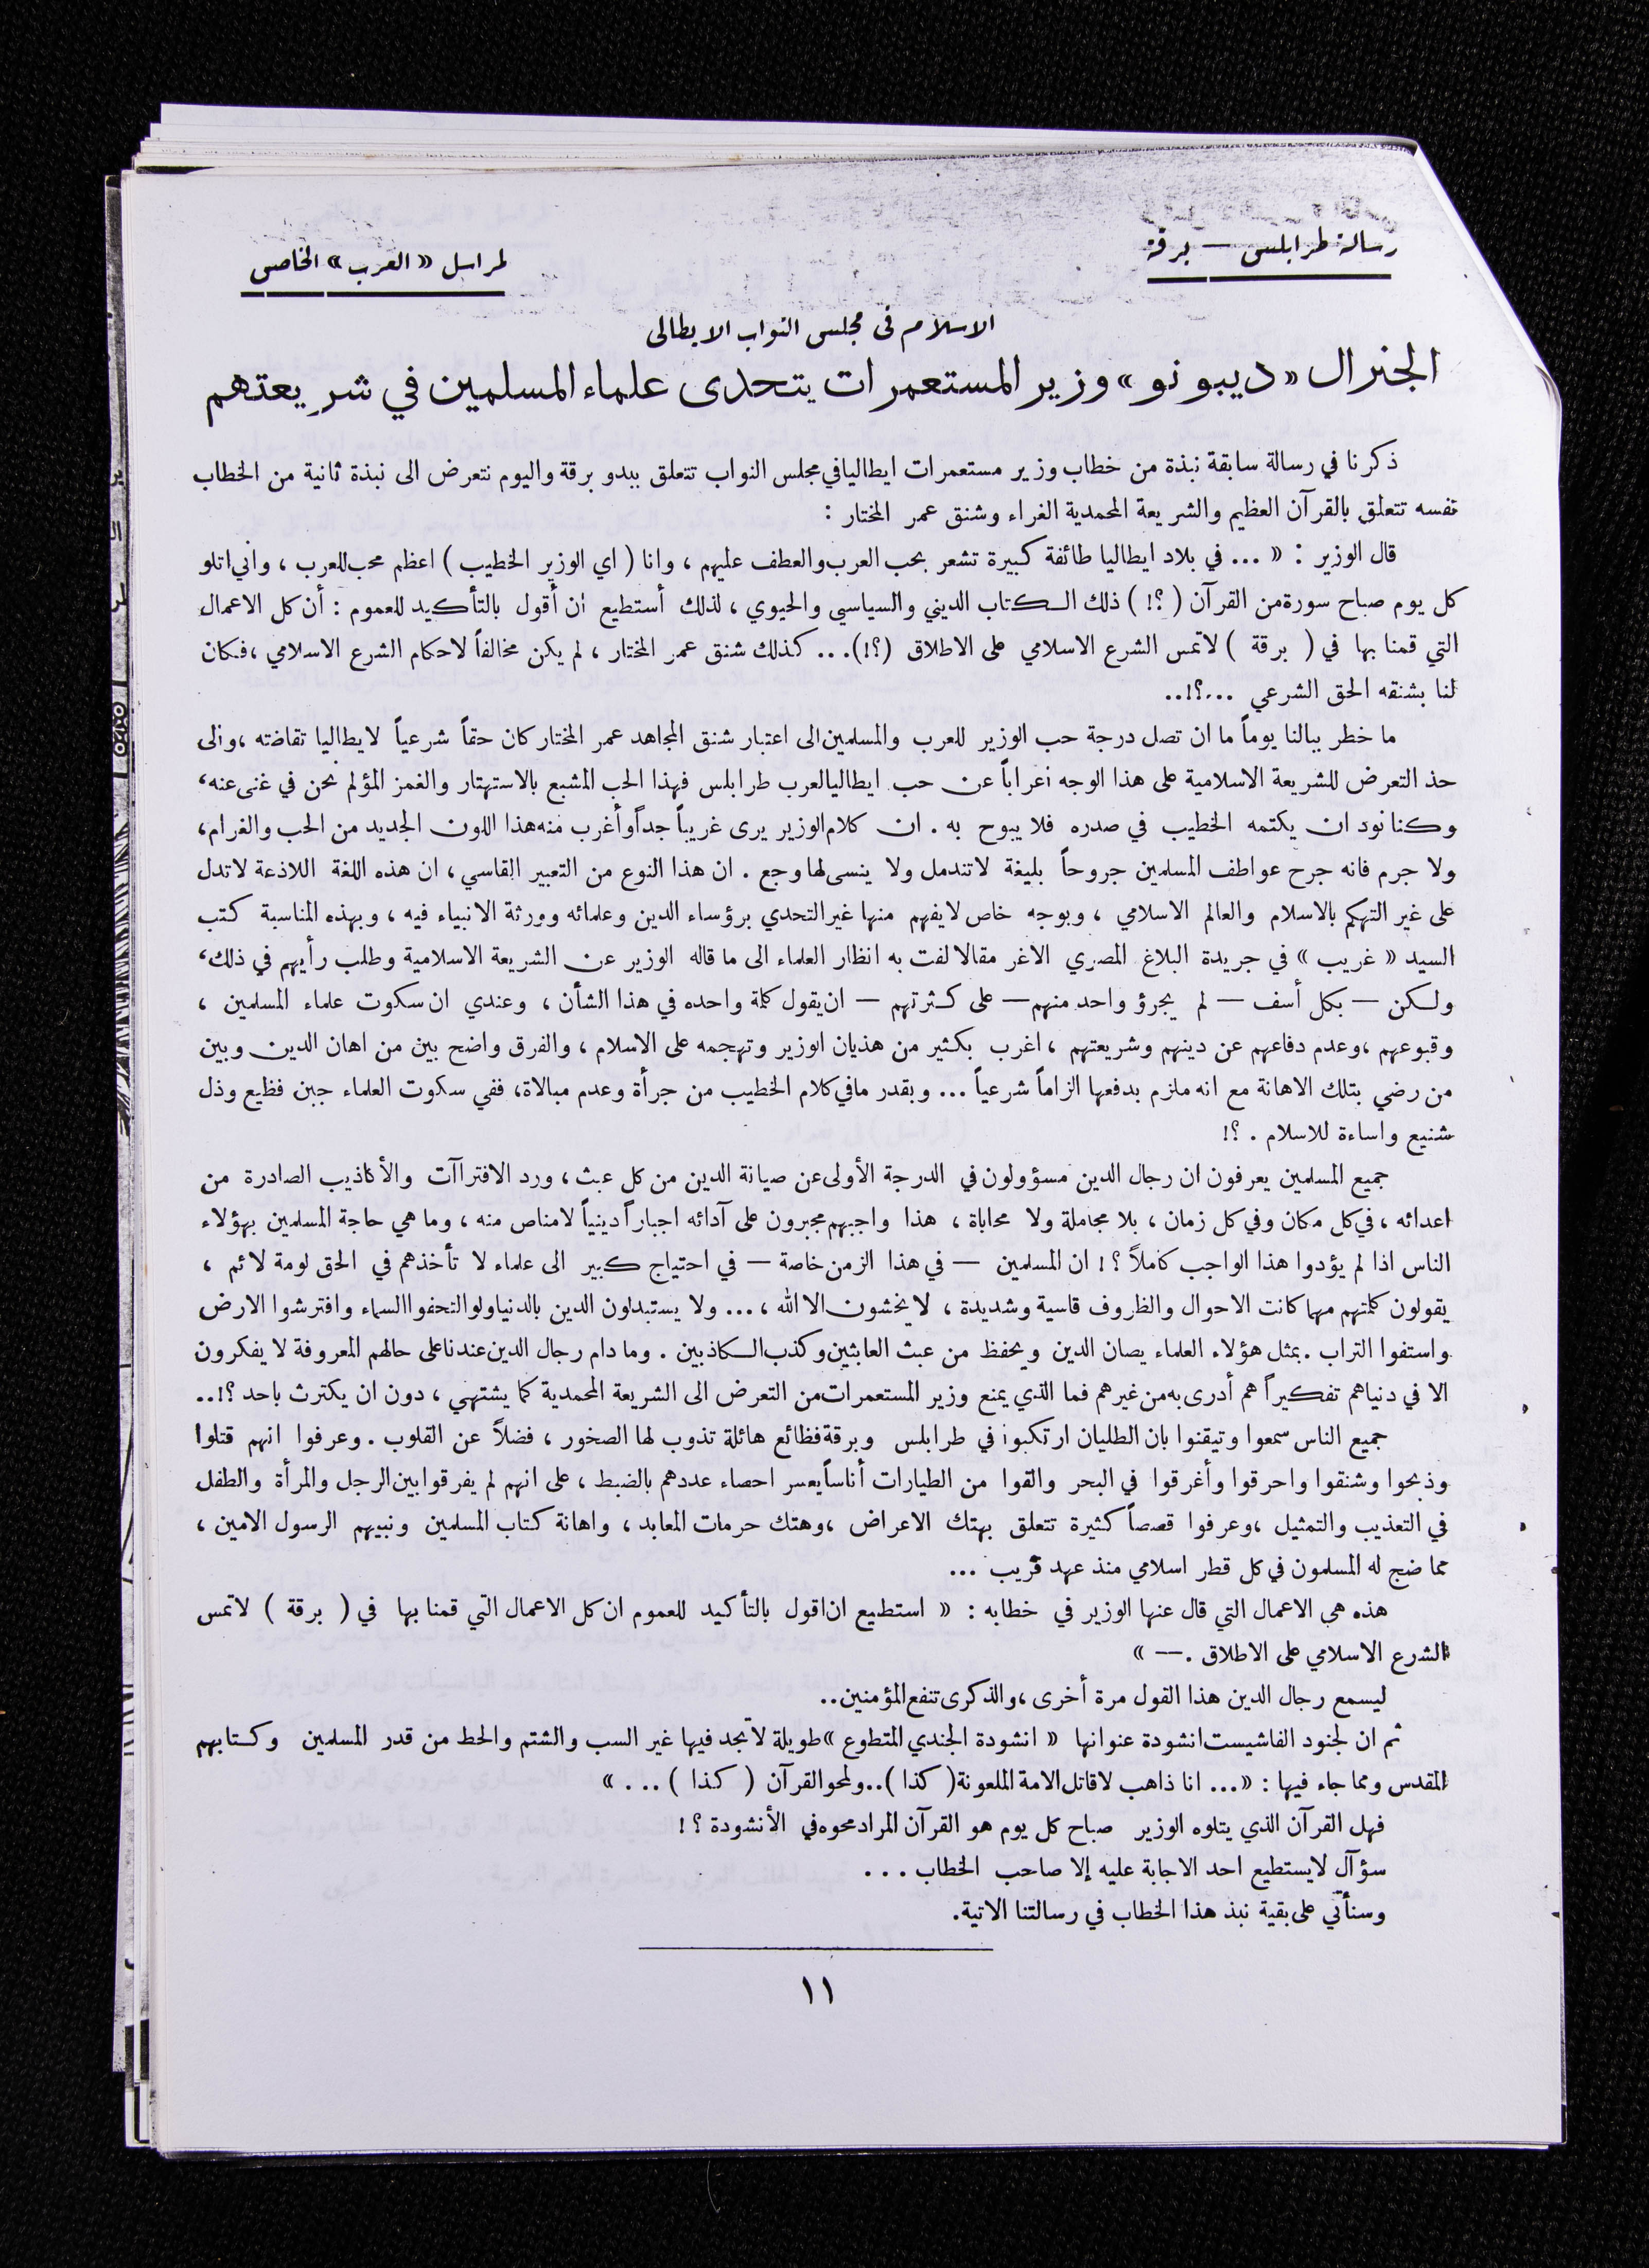 رسالة طرابلس — برقة
لمراسل « العرب » الخاص
الاسلام فى مجلس النواب الايطالى
الجنرال « ديبونو » وزير المستعمرات يتحدى علماء المسلمين في شريعتهم
ذكرنا في رسالة سابقة نبذة من خطاب وزير مستعمرات ايطاليا في مجلس النواب تتعلق ببدو برقة واليوم نتعرض الى نبذة ثانية من الخطاب
نفسه تتعلق بالقرآن العظيم والشريعة المحمدية الغراء وشنق عمر المختار :
قال الوزير : « ... في بلاد ايطاليا طائفة كبيرة تشعر بحب العرب والعطف عليهم ، وانا ( اي الوزير الخطيب ) اعظم محب للعرب ، واني اتلو
كل يوم صباح سورة من القرآن ( ؟! ) ذلك الكتاب الديني والسياسي والحيوي ، لذلك أستطيع ان أقول بالتأكيد للعموم : أن كل الاعمال
التي قمنا بها في ( برقة ) لا تمس الشرع الاسلامي على الاطلاق (؟!)... كذلك شنق عمر المختار ، لم يكن مخالفاً لاحكام الشرع الاسلامي ، فكان
لنا بشنقه الحق الشرعي ...؟!..
ما خطر ببالنا يوماً ما ان تصل درجة حب الوزير للعرب والمسلمين الى اعتبار شنق المجاهد عمر المختار كان حقاً شرعياً لايطاليا تقاضته ، والى
حذ التعرض للشريعة الاسلامية على هذا الوجه اعراباً عن حب ايطاليا لعرب طرابلس فهذا الحب المشبع بالاستهتار والغمز المؤلم نحن في غنى عنه ،
وكنا نود ان يكتمه الخطيب في صدره فلا يبوح به . ان كلام الوزير يرى غريباً جداً وأغرب منه هذا اللون الجديد من الحب والغرام ،
ولا جرم فانه جرح عواطف المسلمين جروحاً بليغة لا تندمل ولا ينسى لها وجع . ان هذا النوع من التعبير القاسي ، ان هذه اللغة اللاذعة لا تدل
على غير التهكم بالاسلام والعالم الاسلامي ، وبوجه خاص لا يفهم منها غير التحدي برؤساء الدين وعلمائه وورثة الانبياء فيه ، وبهذه المناسبة كتب
السيد « غريب » في جريدة البلاغ المصري الاغر مقالا لفت به انظار العلماء الى ما قاله الوزير عن الشريعة الاسلامية وطلب رأيهم في ذلك ،
ولكن — بكل أسف — لم يجرؤ واحد منهم — على كثرتهم — ان يقول كلمة واحده في هذا الشأن ، وعندي ان سكوت علماء المسلمين ،
وقبوعهم ، وعدم دفاعهم عن دينهم وشريعتهم ، اغرب بكثير من هذيان الوزير وتهجمه على الاسلام ، والفرق واضح بين من اهان الدين وبين
من رضي بتلك الاهانة مع انه ملزم بدفعها الزاماً شرعياً ... وبقدر ما في كلام الخطيب من جرأة وعدم مبالاة ، ففي سكوت العلماء جبن فظيع وذل
شنيع واساءة للاسلام . ؟!
جميع المسلمين يعرفون ان رجال الدين مسؤولون في الدرجة الأولى عن صيانة الدين من كل عبث ، ورد الافتراآت والأكاذيب الصادرة من
اعدائه ، في كل مكان وفي كل زمان ، بلا مجاملة ولا محاباة ، هذا واجبهم مجبرون على آدائه اجباراً دينياً لا مناص منه ، وما هي حاجة المسلمين بهؤلاء
الناس اذا لم يؤدوا هذا الواجب كاملاً ؟ ! ان المسلمين — في هذا الزمن خاصة — في احتياج كبير الى علماء لا تأخذهم في الحق لومة لائم ،
يقولون كلمتهم مهما كانت الاحوال والظروف قاسية وشديدة ، لا يخشون الا الله ، ... ولا يستبدلون الدين بالدنيا ولو التحفوا السماء وافترشوا الارض
واستفوا التراب . بمثل هؤلاء العلماء يصان الدين ويحفظ من عبث العابثين وكذب الكاذبين . وما دام رجال الدين عندنا على حالهم المعروفة لا يفكرون
الا في دنياهم تفكيراً هم أدرى به من غيرهم فما الذي يمنع وزير المستعمرات من التعرض الى الشريعة المحمدية كما يشتهي ، دون ان يكترث باحد ؟!..
جميع الناس سمعوا وتيقنوا بان الطليان ارتكبوا في طرابلس وبرقة فظائع هائلة تذوب لها الصخور ، فضلاً عن القلوب . وعرفوا انهم قتلوا
وذبحوا وشنقوا واحرقوا وأغرقوا في البحر والقوا من الطيارات أناساً يعسر احصاء عددهم بالضبط ، على انهم لم يفرقوا بين الرجل والمرأة والطفل
في التعذيب والتمثيل ، وعرفوا قصصاً كثيرة تتعلق بهتك الاعراض ، وهتك حرمات المعابد ، واهانة كتاب المسلمين ونبيهم الرسول الامين ،
مما ضج له المسلمون في كل قطر اسلامي منذ عهد قريب ...
هذه هي الاعمال التي قال عنها الوزير في خطابه : « استطيع ان اقول بالتأكيد للعموم ان كل الاعمال التي قمنا بها في ( برقة ) لا تمس
الشرع الاسلامي على الاطلاق .— »
ليسمع رجال الدين هذا القول مرة أخرى ، والذكرى تنفع المؤمنين ..
ثم ان لجنود الفاشيست انشودة عنوانها « انشودة الجندي المتطوع » طويلة لا تجد فيها غير السب والشتم والحط من قدر المسلمين وكتابهم
المقدس ومما جاء فيها : «... انا ذاهب لاقاتل الامة الملعونة ( كذا ) .. ولمحو القرآن ( كذا ) ... »
فهل القرآن الذي يتلوه الوزير صباح كل يوم هو القرآن المراد محوه في الأنشودة ؟ !
سؤآل لا يستطيع احد الاجابة عليه إلا صاحب الخطاب ...
وسنأتي على بقية نبذ هذا الخطاب في رسالتنا الاتية.
١١